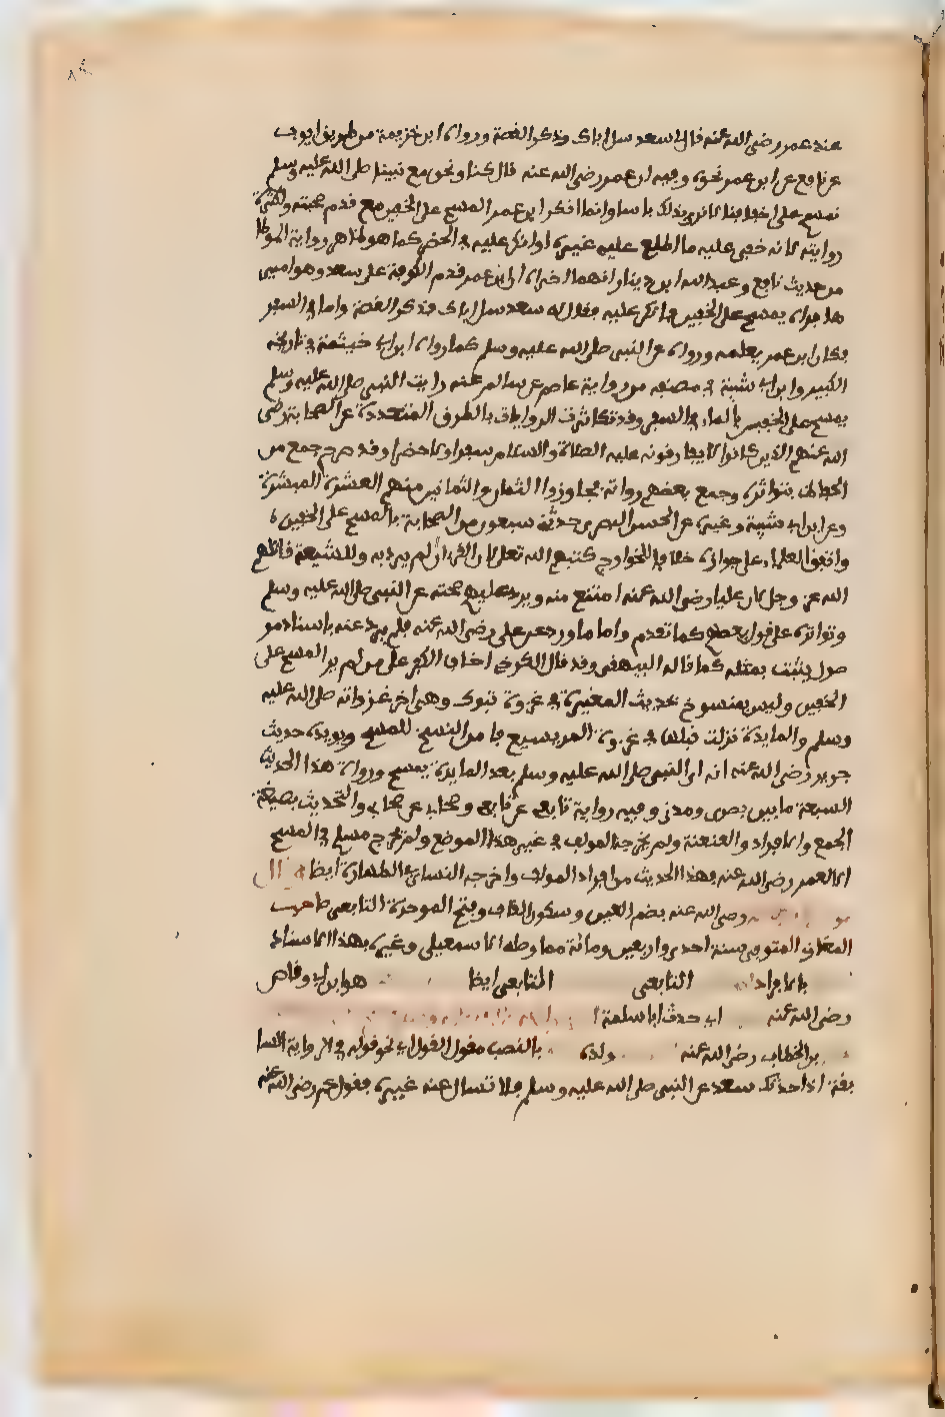 عند عمر رضي الله عنه قال سعد سل اباك وذكر القصة ورواه ابن خزيمة من طريق ايوب
عن نافع عن ابن عمر نحوه وفيه ان عمر رضي الله عنه قال كنا ونحن مع نبينا صلى الله عليه وسلم
نمسح على اخفافنا لا نرى بذلك باسا وانما انكر ابن عمر المسح على الخفين مع قدم صحبته وكثرة
روايته لانه خفي عليه ما اطلع عليه غيره او انكر عليه في الحضر كما هو ظاهر رواية الموطا
من حديث نافع وعبد الله ابن دينار انهما اخبراه ان ابن عمر قدم الكوفة على سعد وهو اميرها
فراه يمسح على الخفين فانكر عليه فقال له سعد سل اباك فذكر القصة واما في السفر
فكان ابن عمر يعلمه ورواه عن النبي صلى الله عليه وسلم كما رواه ابن ابي خيثمة في تاريخه
الكبير وابن ابي شيبة في مصنفه من رواية عاصم عن سالم عنه رايت النبي صلى الله عليه وسلم
يمسح على الخفين بالماء في السفر وقد تكاثرت الروايات بالطرق المتعددة عن الصحابة رضي
الله عنهم الذين كانوا لا يفارقونه عليه الصلاة والسلام سفرا ولا حضرا وقد صرح جمع من
الحفاظ بتواتره وجمع بعضهم رواته فجاوزوا الثمانين منهم العشرة المبشرة
وعن ابن ابي شيبة وغيره عن الحسن البصري حدثني سبعون من الصحابة بالمسح على الخفين
واتفق العلماء على جوازه خلافا للخوارج كتبهم الله تعالى لان القرءان لم يرد به وللشيعة قاتلهم
الله عز وجل لان عليا رضي الله عنه امتنع منه ويرد عليهم صحته عن النبي صلى الله عليه وسلم
وتواتره على قول بعضهم كما تقدم واما ما ورد عن علي رضي الله عنه فلم يرد عنه باسناد مو
صول يثبت بمثله كما قاله البيهقي وقد قال الكرخي اخاف الكفر على من لم ير المسح على
الخفين وليس بمنسوخ لحديث المغيرة في غزوة تبوك وهي اخر غزواته صلى الله عليه
وسلم والمايدة نزلت قبلها في غزوة المريسيع فامن النسخ للمسح ويويده حديث
جرير رضي الله عنه انه راى النبي صلى الله عليه وسلم بعد المايدة يمسح ورواة هذا الحديث
السبعة ما بين بصرى ومدنى وفيه رواية تابعي عن تابعي وصحابي عن صحابي والتحديث بصيغة
الجمع والافراد والعنعنة ولم يخرجه المولف في غير هذا الموضع ولم يخرج مسلم في المسح
الا لعمر رضي الله عنه فهذا الحديث من افراد المولف واخرجه النسائي في الطهارة ايضا
رضي الله عنه بضم العين وسكون القاف وفتح الموحدة التابعي صاحب
المغازي المتوفى سنة احدى واربعين ومائة مما وصله الاسماعيلي وغيره بهذا الاسناد
بالافراد التابعي التابعي ايضا هو ابن ابي وقاص
رضي الله عنه اي حدث ابا سلمة
بن الخطاب رضي الله عنه ولده بالنصب مقول القول اي نحو قوله في الرواية السا
بقة اذا حدثك سعد عن النبي صلى الله عليه وسلم فلا تسال عنه غيره فقول عمر رضي الله عنه